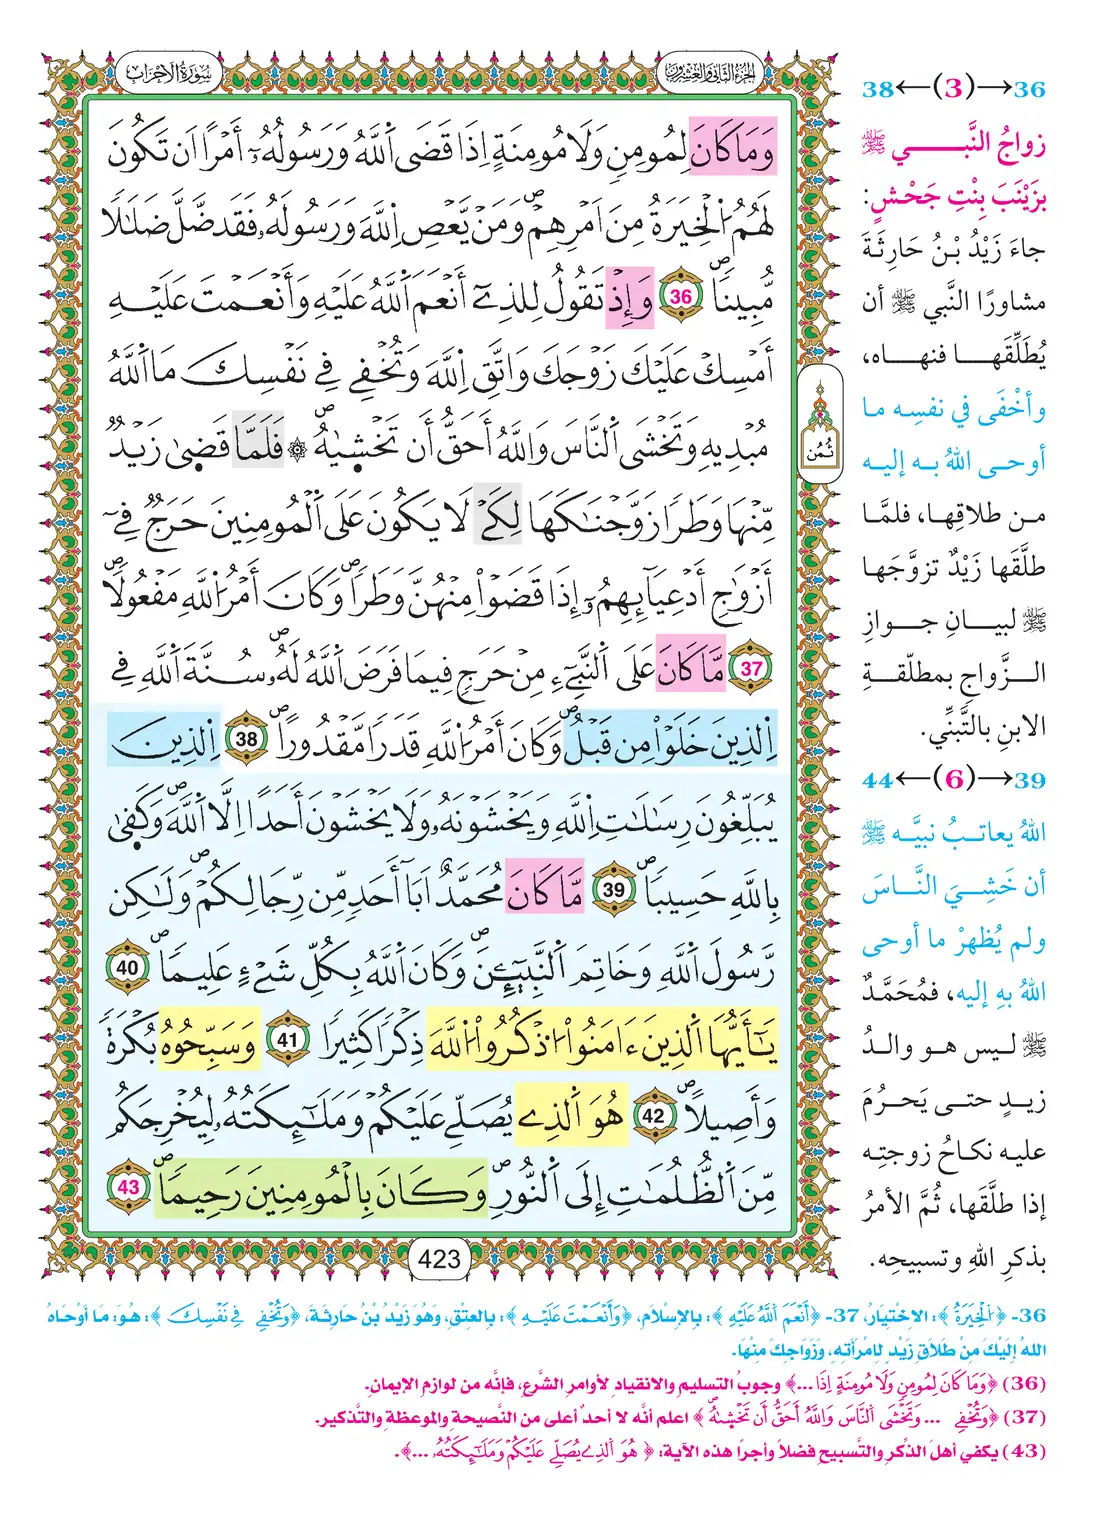 سُورَةُ الأَحْزَابِ
الجُزْءُ الثَّانِي وَالعِشْرُونَ
وَمَا كَانَ لِمُومِنٖ وَلَا مُومِنَةٍ اِذَا قَضَى اَللَّهُ وَرَسُولُهُۥٓ أَمْراً اَن تَكُونَ
لَهُمُ اُ۬لْخِيَرَةُ مِنَ اَمْرِهِمْۖ وَمَنْ يَّعْصِ اِ۬للَّهَ وَرَسُولَهُۥ فَقَد ضَّلَّ ضَلَٰلاٗ
مُّبِيناٗۖ 36 وَإِذْ تَقُولُ لِلذِےٓ أَنْعَمَ اَ۬للَّهُ عَلَيْهِ وَأَنْعَمْتَ عَلَيْهِ
أَمْسِكْ عَلَيْكَ زَوْجَكَ وَاتَّقِ اِ۬للَّهَ وَتُخْفِے فِے نَفْسِكَ مَا اَ۬للَّهُ
مُبْدِيهِ وَتَخْشَى اَ۬لنَّاسَ وَاللَّهُ أَحَقُّ أَن تَخْشَىٰهُۖ ۞ فَلَمَّا قَضَىٰ زَيْدٞ
مِّنْهَا وَطَراٗ زَوَّجْنَٰكَهَا لِكَےْ لَا يَكُونَ عَلَى اَ۬لْمُومِنِينَ حَرَجٞ فِےٓ
أَزْوَٰجِ أَدْعِيَآئِهِمُۥٓ إِذَا قَضَوْاْ مِنْهُنَّ وَطَراٗۖ وَكَانَ أَمْرُ اُ۬للَّهِ مَفْعُولاٗۖ
37 مَّا كَانَ عَلَى اَ۬لنَّبِےٓءِ مِنْ حَرَجٖ فِيمَا فَرَضَ اَ۬للَّهُ لَهُۥۖ سُنَّةَ اَ۬للَّهِ فِے
اِ۬لذِينَ خَلَوْاْ مِن قَبْلُۖ وَكَانَ أَمْرُ اُ۬للَّهِ قَدَراٗ مَّقْدُوراًۖ 38 اِ۬لذِينَ
يُبَلِّغُونَ رِسَٰلَٰتِ اِ۬للَّهِ وَيَخْشَوْنَهُۥ وَلَا يَخْشَوْنَ أَحَداً اِلَّا اَ۬للَّهَۖ وَكَفَىٰ
بِاللَّهِ حَسِيباٗۖ 39 مَّا كَانَ مُحَمَّدٌ اَبَآ أَحَدٖ مِّن رِّجَالِكُمْۖ وَلَٰكِن
رَّسُولَ اَ۬للَّهِ وَخَاتِمَ اَ۬لنَّبِيٓـِٕينَۖ وَكَانَ اَ۬للَّهُ بِكُلِّ شَےْءٍ عَلِيماٗۖ 40
يَٰٓأَيُّهَا اَ۬لذِينَ ءَامَنُواْ اُ۬ذْكُرُواْ اُ۬للَّهَ ذِكْراٗ كَثِيراٗ 41 وَسَبِّحُوهُ بُكْرَةٗ
وَأَصِيلاًۖ 42 هُوَ اَ۬لذِے يُصَلِّے عَلَيْكُمْ وَمَلَٰٓئِكَتُهُۥ لِيُخْرِجَكُم
مِّنَ اَ۬لظُّلُمَٰتِ إِلَى اَ۬لنُّورِۖ وَكَانَ بِالْمُومِنِينَ رَحِيماٗۖ 43
ثُمُن
423
36→(3)←38
زواجُ النَّبي ﷺ
بزَيْنَبَ بِنْتِ جَحْشٍ:
جاءَ زَيْدُ بْنُ حَارِثَةَ
مشاورًا النَّبي ﷺ أن
يُطَلِّقَها فنهاه،
وأخْفَى في نفسِه ما
أوحى اللهُ به إليه
من طلاقِها، فلمَّا
طلَّقَها زَيْدٌ تزوَّجَها
ﷺ لبيانِ جوازِ
الزَّواجِ بمطلّقةِ
الابنِ بالتَّبنِّي.
39→(6)←44
اللهُ يعاتبُ نبيَّه ﷺ
أن خَشِيَ النَّاسَ
ولم يُظهرْ ما أوحى
اللهُ بهِ إليه، فمُحَمَّدٌ
ﷺ ليس هو والدُ
زيدٍ حتى يَحرُمَ
عليه نكاحُ زوجتِه
إذا طلَّقَها، ثُمَّ الأمرُ
بذكرِ اللهِ وتسبيحِه.
36- ﴿اُ۬لْخِيَرَةُ﴾: الاخْتِيَارُ، 37- ﴿أَنْعَمَ اَ۬للَّهُ عَلَيْهِ﴾: بِالإسْلَامِ، ﴿وَأَنْعَمْتَ عَلَيْهِ﴾: بِالعِتْقِ، وَهُوَ زَيْدُ بْنُ حَارِثَةَ، ﴿وَتُخْفِے فِے نَفْسِكَ﴾: هُوَ: مَا أَوْحَاهُ
اللهُ إِلَيْكَ مِنْ طَلَاقِ زَيْدٍ لِامْرَأَتِهِ، وَزَوَاجِكَ مِنْهَا.
(36) ﴿وَمَا كَانَ لِمُومِنٖ وَلَا مُومِنَةٍ اِذَا ...﴾ وجوبُ التسليمِ والانقيادِ لأوامرِ الشَّرعِ، فإنَّه من لوازمِ الإيمانِ.
(37) ﴿وَتُخْفِے ... وَتَخْشَى اَ۬لنَّاسَ وَاللَّهُ أَحَقُّ أَن تَخْشَىٰهُۖ﴾ اعلم أنَّه لا أحدٌ أعلى من النَّصيحةِ والموعظةِ والتَّذكيرِ.
(43) يكفي أهلَ الذِّكرِ والتَّسبيحِ فضلًا وأجرًا هذه الآية: ﴿هُوَ اَ۬لذِے يُصَلِّے عَلَيْكُمْ وَمَلَٰٓئِكَتُهُۥ ...﴾.